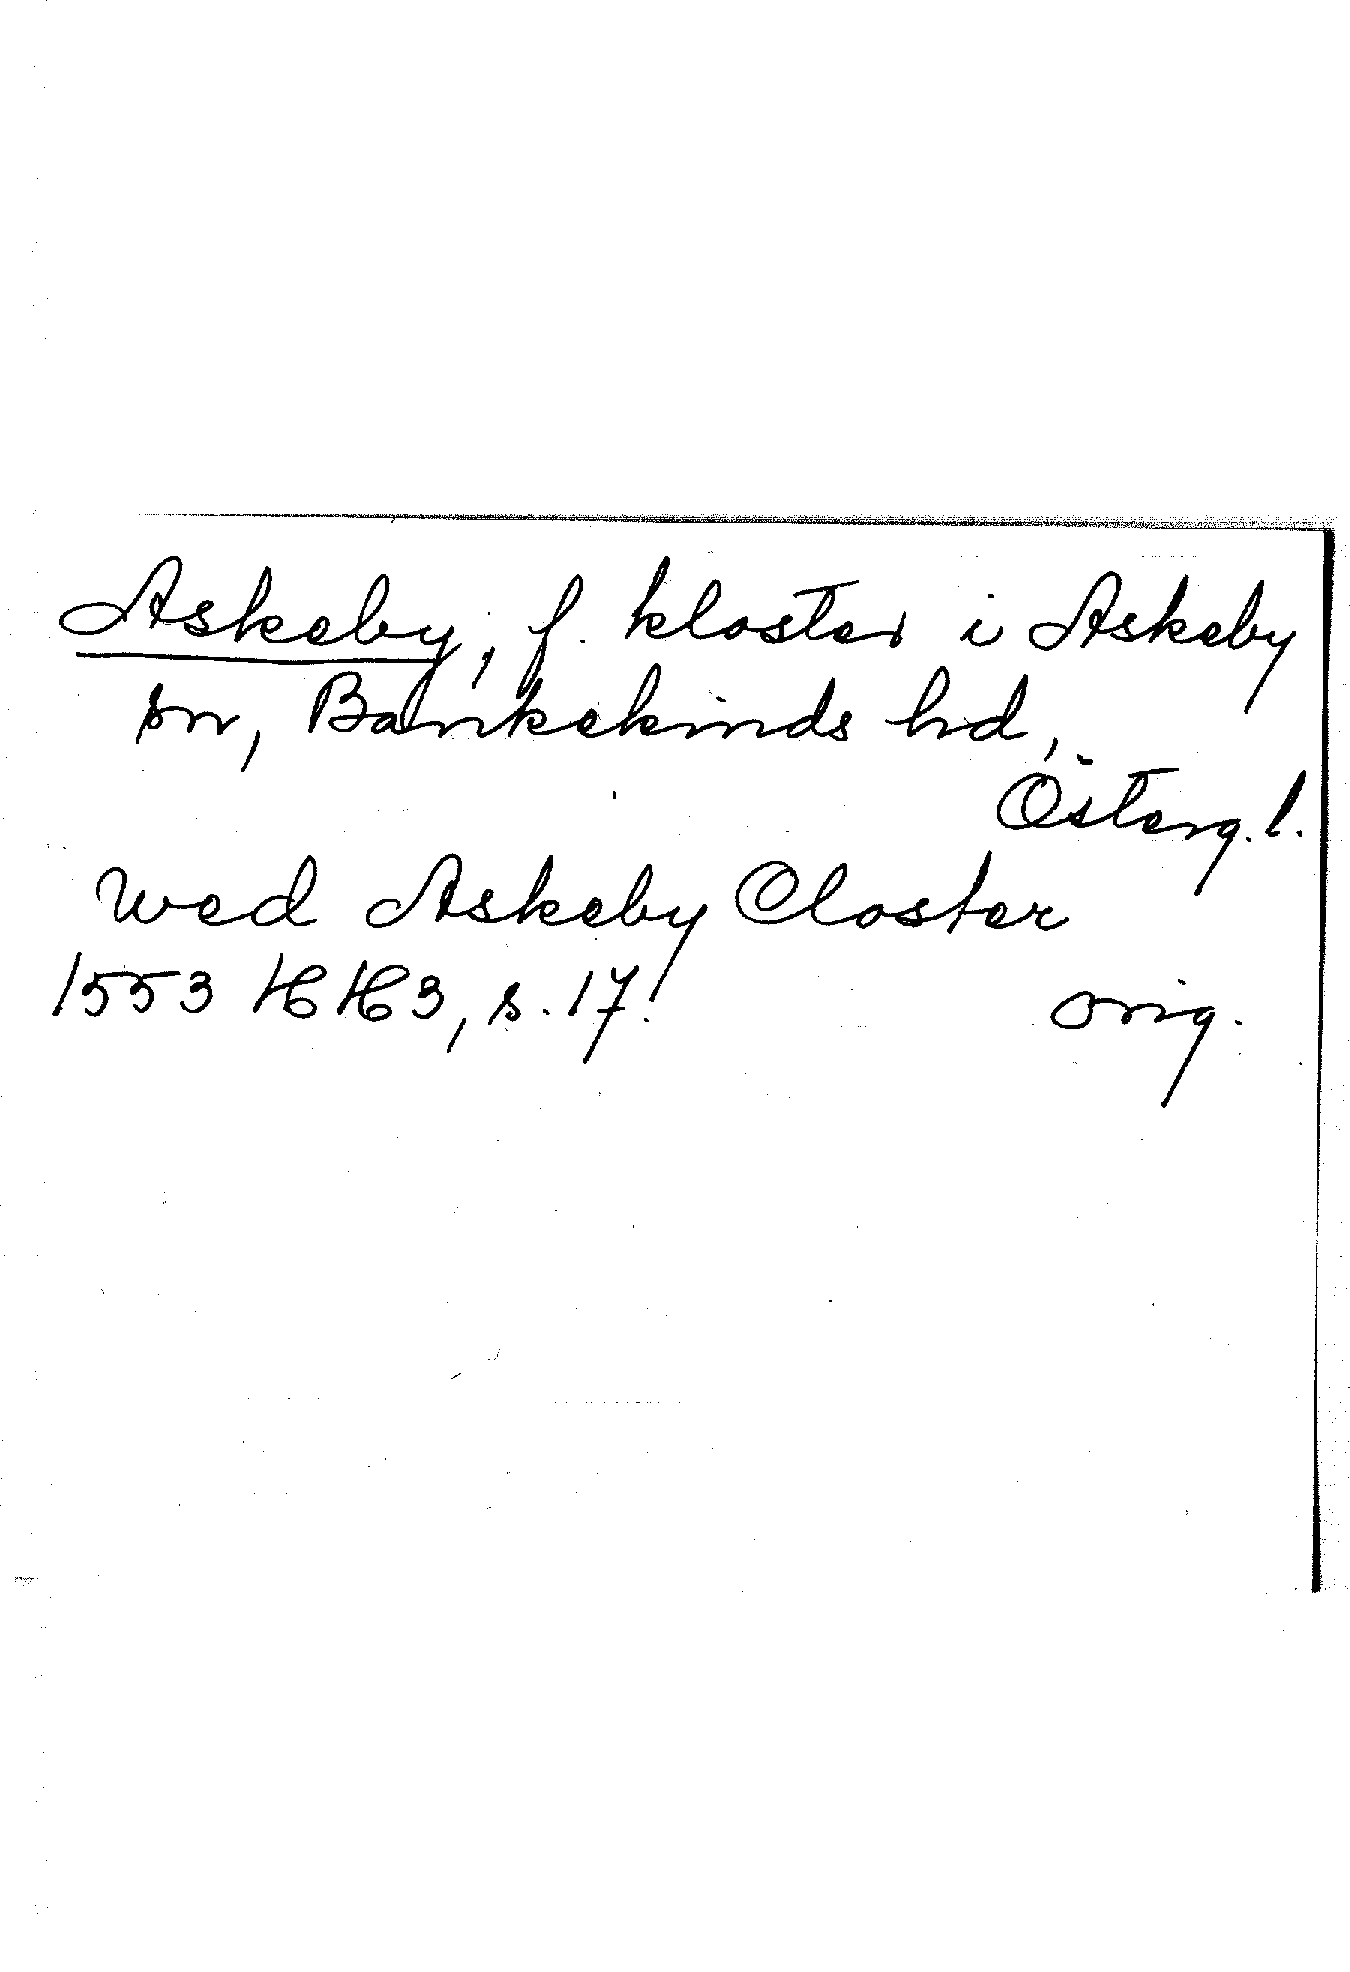 Askeby, f. kloster i Askeby
sn, Bankekinds hd,
Österg. l.
Wed Askeby Closter
1553 HH3, s. 17.
orig.